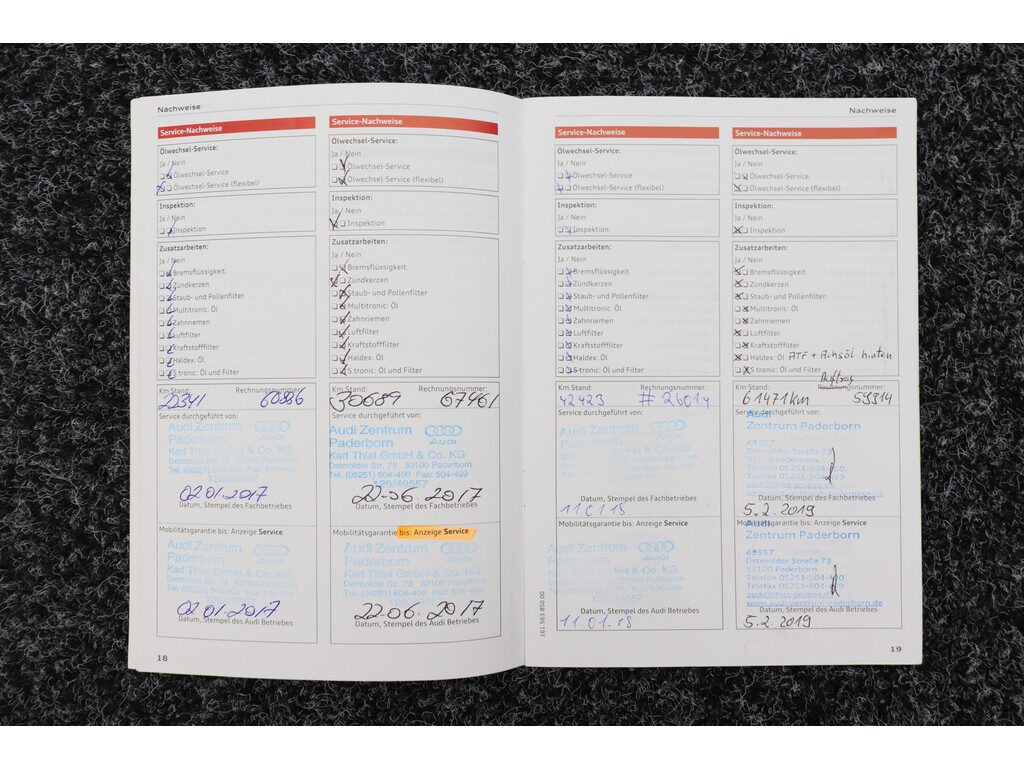 Nachweise
Service-Nachweise
Ölwechsel-Service:
Ja / Nein
Ölwechsel-Service
Ölwechsel-Service (flexibel)
Inspektion:
Ja / Nein
Inspektion
Zusatzarbeiten:
Ja / Nein
Bremsflüssigkeit
Zündkerzen
Staub- und Pollenfilter
Multitronic: Öl
Zahnriemen
Luftfilter
Kraftstofffilter
Haldex: Öl
S tronic: Öl und Filter
Km Stand: Rechnungsnummer:
Service durchgeführt von:
Audi Zentrum
Paderborn
Audi
Karl Thiel GmbH & Co. KG
Detmolder Str. 73 33100 Paderborn
Tel. (05251) 504-400 Fax: 504-499
126/49557
02.01.2017
Datum, Stempel des Fachbetriebes
Mobilitätsgarantie bis: Anzeige Service
Audi Zentrum
Paderborn
Audi
Karl Thiel GmbH & Co. KG
Detmolder Str. 73 33100 Paderborn
02.01.2017
Datum, Stempel des Audi Betriebes
18
Service-Nachweise
Ölwechsel-Service:
Ja / Nein
Ölwechsel-Service
Ölwechsel-Service (flexibel)
Inspektion:
Ja / Nein
Inspektion
Zusatzarbeiten:
Ja / Nein
Bremsflüssigkeit
Zündkerzen
Staub- und Pollenfilter
Multitronic: Öl
Zahnriemen
Luftfilter
Kraftstofffilter
Haldex: Öl
S tronic: Öl und Filter
Km Stand: Rechnungsnummer:
30689 67461
Service durchgeführt von:
Audi Zentrum
Paderborn
Audi
Karl Thiel GmbH & Co. KG
Detmolder Str. 73 33100 Paderborn
Tel. (05251) 504-400 Fax: 504-499
126/49557
22-06.2017
Datum, Stempel des Fachbetriebes
Mobilitätsgarantie bis: Anzeige Service
Audi Zentrum
Paderborn
Audi
Karl Thiel GmbH & Co. KG
Detmolder Str. 73 33100 Paderborn
22-06.2017
Datum, Stempel des Audi Betriebes
Nachweise
Service-Nachweise
Ölwechsel-Service:
Ja / Nein
Ölwechsel-Service
Ölwechsel-Service (flexibel)
Inspektion:
Ja / Nein
Inspektion
Zusatzarbeiten:
Ja / Nein
Bremsflüssigkeit
Zündkerzen
Staub- und Pollenfilter
Multitronic: Öl
Zahnriemen
Luftfilter
Kraftstofffilter
Haldex: Öl
S tronic: Öl und Filter
Km Stand: Rechnungsnummer:
42423 #26014
Service durchgeführt von:
Audi Zentrum
Paderborn
Audi
Karl Thiel GmbH & Co. KG
Detmolder Str. 73 33100 Paderborn
126/49557
Datum, Stempel des Fachbetriebes
11.01.18
Mobilitätsgarantie bis: Anzeige Service
Audi Zentrum
Paderborn
Audi
Karl Thiel GmbH & Co. KG
Datum, Stempel des Audi Betriebes
11.01.18
161.563.850.00
Service-Nachweise
Ölwechsel-Service:
Ja / Nein
Ölwechsel-Service
Ölwechsel-Service (flexibel)
Inspektion:
Ja / Nein
Inspektion
Zusatzarbeiten:
Ja / Nein
Bremsflüssigkeit
Zündkerzen
Staub- und Pollenfilter
Multitronic: Öl
Zahnriemen
Luftfilter
Kraftstofffilter
Haldex: Öl ATF + Achsöl hinten
S tronic: Öl und Filter
Auftrag
Km Stand: Rechnungsnummer:
61471km 59314
Service durchgeführt von:
Audi
Zentrum Paderborn
49557
Detmolder Straße 73
33100 Paderborn
Datum, Stempel des Fachbetriebes
5.2.2019
Mobilitätsgarantie bis: Anzeige Service
Audi
Zentrum Paderborn
49557
Detmolder Straße 73
33100 Paderborn
www.audizentrum-paderborn.de
Datum, Stempel des Audi Betriebes
5.2.2019
19